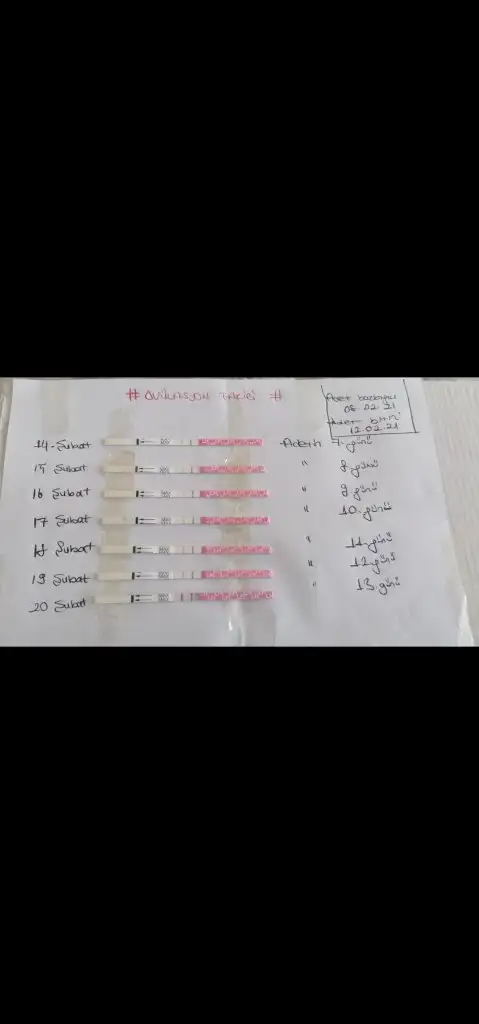 # Ovulasyon Takibi #
Adet başlangıcı
08.02.21
Adet bitti
12.02.21
14 - Şubat Adetin 7. günü
15 Şubat " 8. günü
16 Şubat " 9. günü
17 Şubat " 10. günü
18 Şubat " 11. günü
19 Şubat " 12. günü
20 Şubat " 13. günü